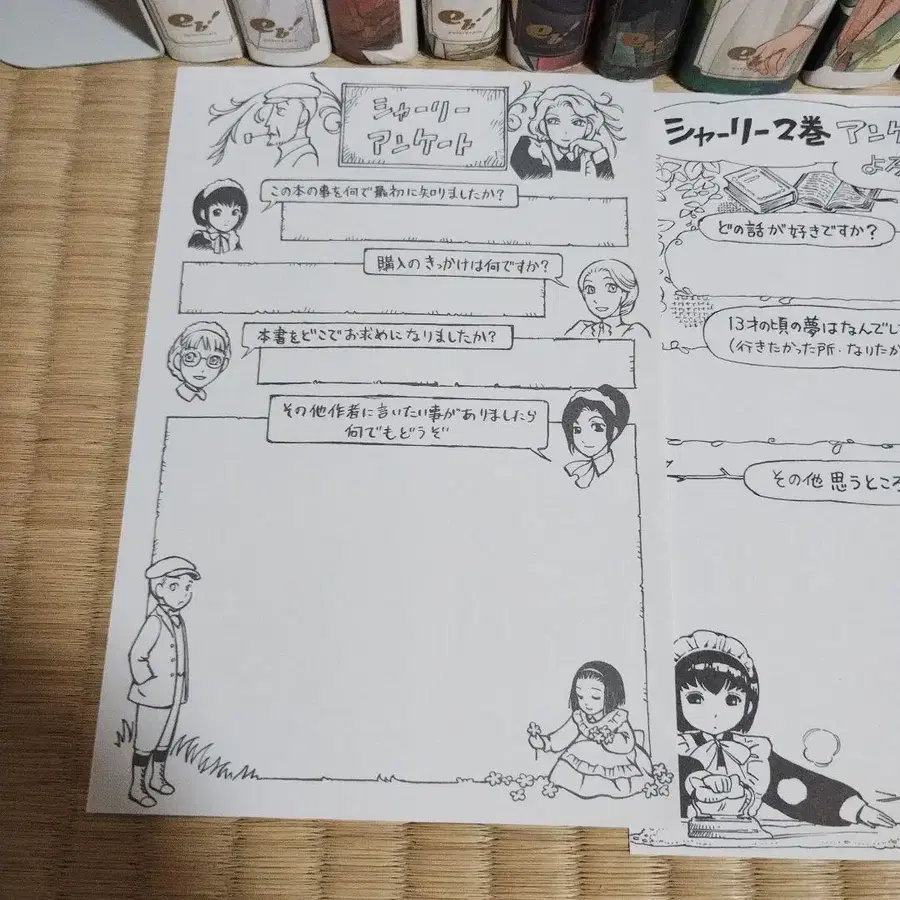 eb!
eb!
eb!
シャーリー
アンケート
この本の事を何で最初に知りましたか?
購入のきっかけは何ですか?
本書をどこでお求めになりましたか?
その他作者に言いたい事がありましたら
何でもどうぞ
シャーリー2巻 アンケ
よろ
どの話が好きですか?
13才の頃の夢はなんでし
(行きたかった所・なりたか
その他思うところ